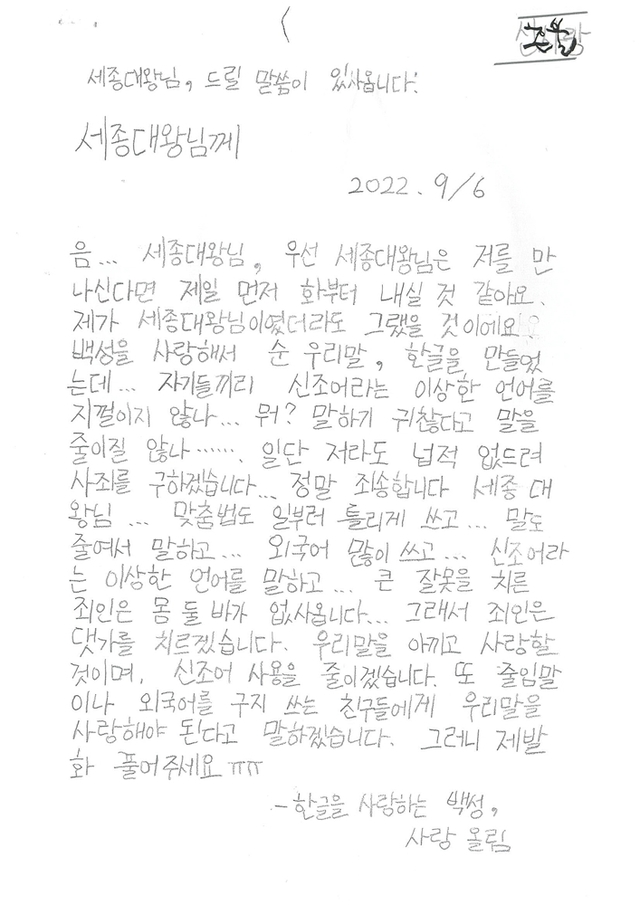 세종대왕님, 드릴 말씀이 있사옵니다!
세종대왕님께
2022. 9/6
음... 세종대왕님, 우선 세종대왕님은 저를 만
나신다면 제일 먼저 화부터 내실 것 같아요.
제가 세종대왕님이였더라도 그랬을 것이에요
백성을 사랑해서 순 우리말, 한글을 만들었
는데... 자기들끼리 신조어라는 이상한 언어를
지껄이지 않나... 뭐? 말하기 귀찮다고 말을
줄이질 않나....... 일단 저라도 넙적 없드려
사죄를 구하겠습니다... 정말 죄송합니다 세종 대
왕님 ... 맞춤법도 일부러 틀리게 쓰고... 말도
줄여서 말하고... 외국어 많이 쓰고... 신조어라
는 이상한 언어를 말하고... 큰 잘못을 치른
죄인은 몸 둘 바가 없사옵니다... 그래서 죄인은
댓가를 치르겠습니다. 우리말을 아끼고 사랑할
것이며, 신조어 사용을 줄이겠습니다. 또 줄임말
이나 외국어를 구지 쓰는 친구들에게 우리말을
사랑해야 된다고 말하겠습니다. 그러니 제발
화 풀어주세요 ㅠㅠ
-한글을 사랑하는 백성,
사랑 올림